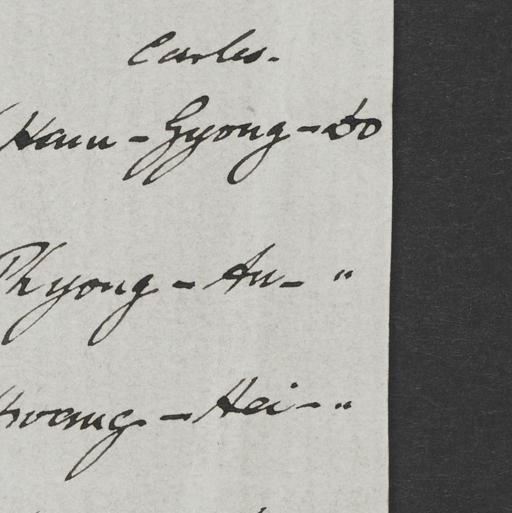 Carles.
Ham-Gyong-do
Phyong-An-"
Hwang-Hei-"